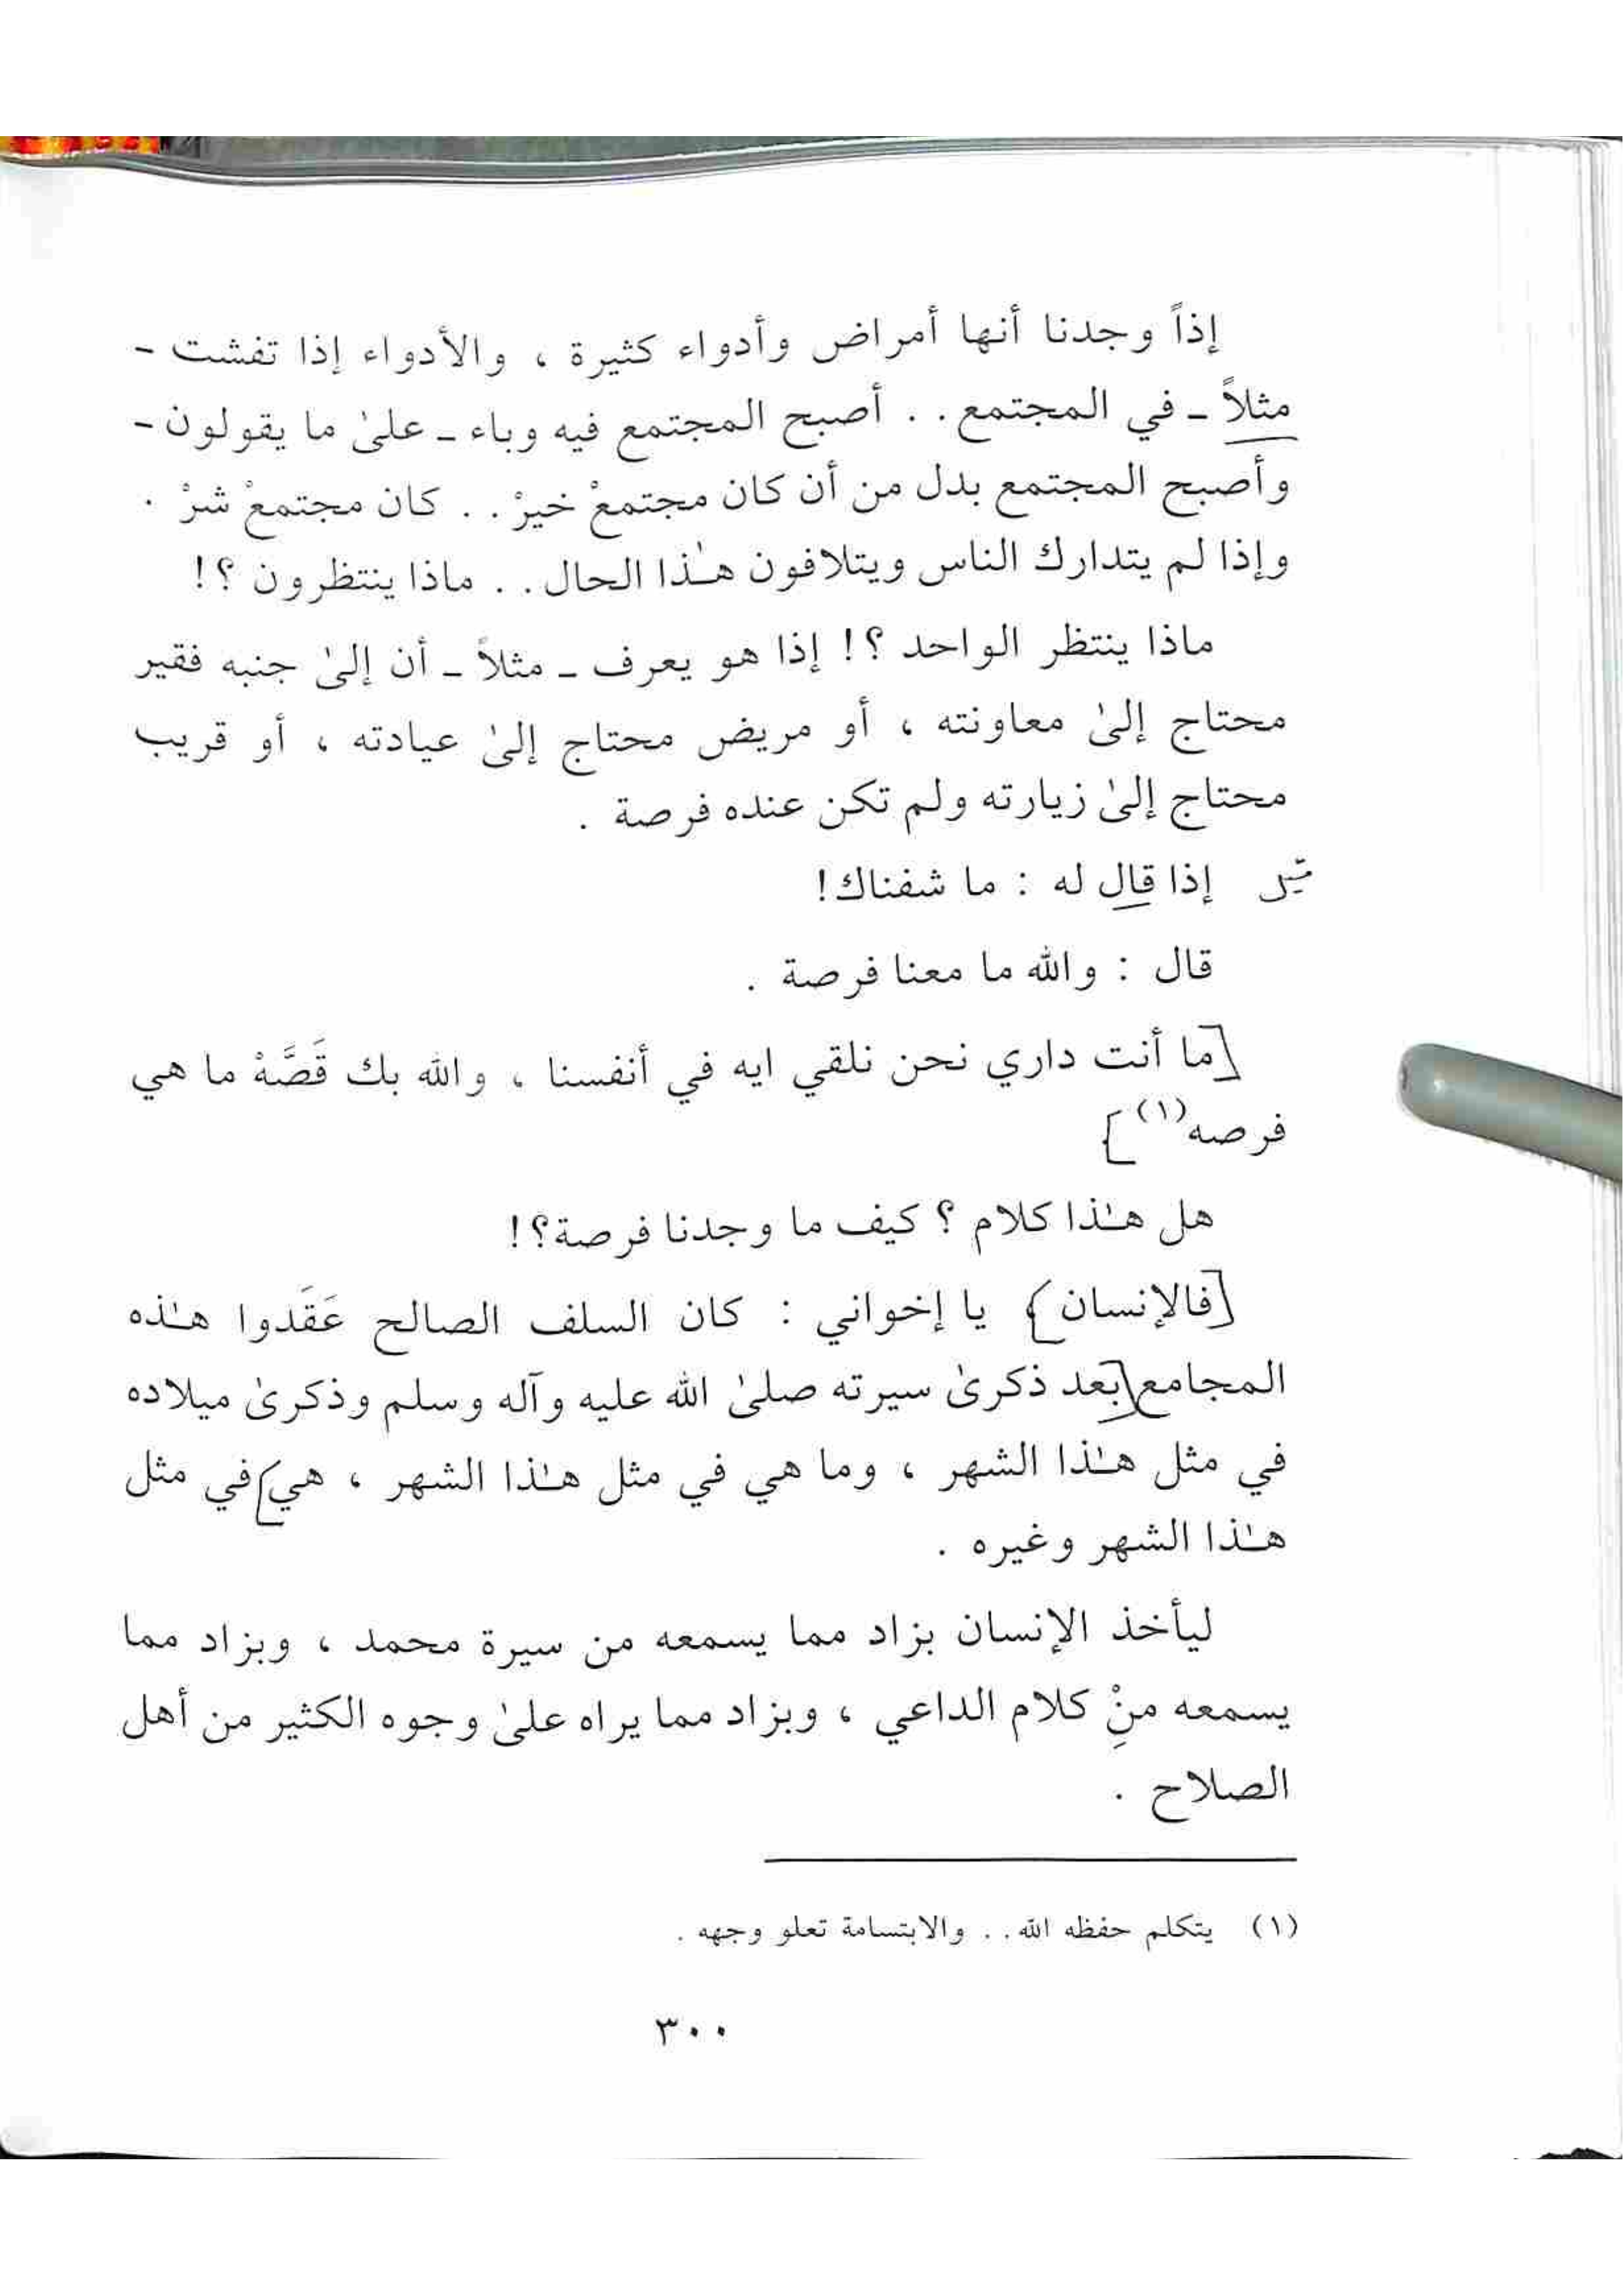 إذاً وجدنا أنها أمراض وأدواء كثيرة ، والأدواء إذا تفشت -
مثلاً - في المجتمع . . أصبح المجتمع فيه وباء - علىٰ ما يقولون -
وأصبح المجتمع بدل من أن كان مجتمعْ خيرْ . . كان مجتمعْ شرْ .
وإذا لم يتدارك الناس ويتلافون هـٰذا الحال . . ماذا ينتظرون ؟!
ماذا ينتظر الواحد ؟! إذا هو يعرف - مثلاً - أن إلىٰ جنبه فقير
محتاج إلىٰ معاونته ، أو مريض محتاج إلىٰ عيادته ، أو قريب
محتاج إلىٰ زيارته ولم تكن عنده فرصة .
إذا قال له : ما شفناك!
قال : والله ما معنا فرصة .
[ما أنت داري نحن نلقي ايه في أنفسنا ، والله بك قَصَّهْ ما هي
فرصه(١)]
هل هـٰذا كلام ؟ كيف ما وجدنا فرصة؟!
[فالإنسان] يا إخواني : كان السلف الصالح عَقَدوا هـٰذه
المجامع [بعد ذكرىٰ سيرته صلىٰ الله عليه وآله وسلم وذكرىٰ ميلاده
في مثل هـٰذا الشهر ، وما هي في مثل هـٰذا الشهر ، هي] في مثل
هـٰذا الشهر وغيره .
ليأخذ الإنسان بزاد مما يسمعه من سيرة محمد ، وبزاد مما
يسمعه منْ كلام الداعي ، وبزاد مما يراه علىٰ وجوه الكثير من أهل
الصلاح .
(١) يتكلم حفظه الله . . والابتسامة تعلو وجهه .
٣٠٠